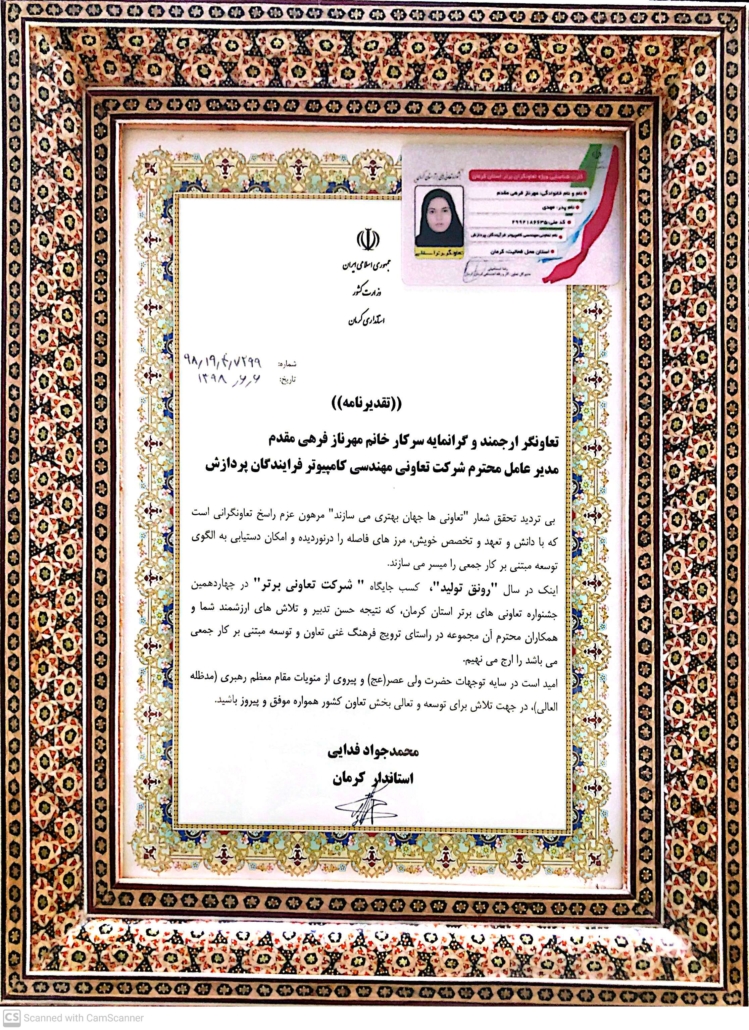 کارت شناسایی ویژه تعاونگران برتر استان کرمان
نام و نام خانوادگی: مهرناز فرهی مقدم
نام پدر: مهدی
کد ملی:
نام تعاونی: مهندسی کامپیوتر فرآیندگان پردازش
استان محل فعالیت: کرمان
جمهوری اسلامی ایران
وزارت کشور
استانداری کرمان
شماره: ۹۸/۱۹/۴/۷۲۹۹
تاریخ: ۱۳۹۸/۶/۶
((تقدیرنامه))
تعاونگر ارجمند و گرانمایه سرکار خانم مهرناز فرهی مقدم
مدیر عامل محترم شرکت تعاونی مهندسی کامپیوتر فرایندگان پردازش
بی تردید تحقق شعار "تعاونی ها جهان بهتری می سازند" مرهون عزم راسخ تعاونگرانی است
که با دانش و تعهد و تخصص خویش، مرز های فاصله را درنوردیده و امکان دستیابی به الگوی
توسعه مبتنی بر کار جمعی را میسر می سازند.
اینک در سال "رونق تولید"، کسب جایگاه " شرکت تعاونی برتر" در چهاردهمین
جشنواره تعاونی های برتر استان کرمان، که نتیجه حسن تدبیر و تلاش های ارزشمند شما و
همکاران محترم آن مجموعه در راستای ترویج فرهنگ غنی تعاون و توسعه مبتنی بر کار جمعی
می باشد را ارج می نهیم.
امید است در سایه توجهات حضرت ولی عصر(عج) و پیروی از منویات مقام معظم رهبری (مدظله
العالی)، در جهت تلاش برای توسعه و تعالی بخش تعاون کشور همواره موفق و پیروز باشید.
محمدجواد فدایی
استاندار کرمان
CS Scanned with CamScanner